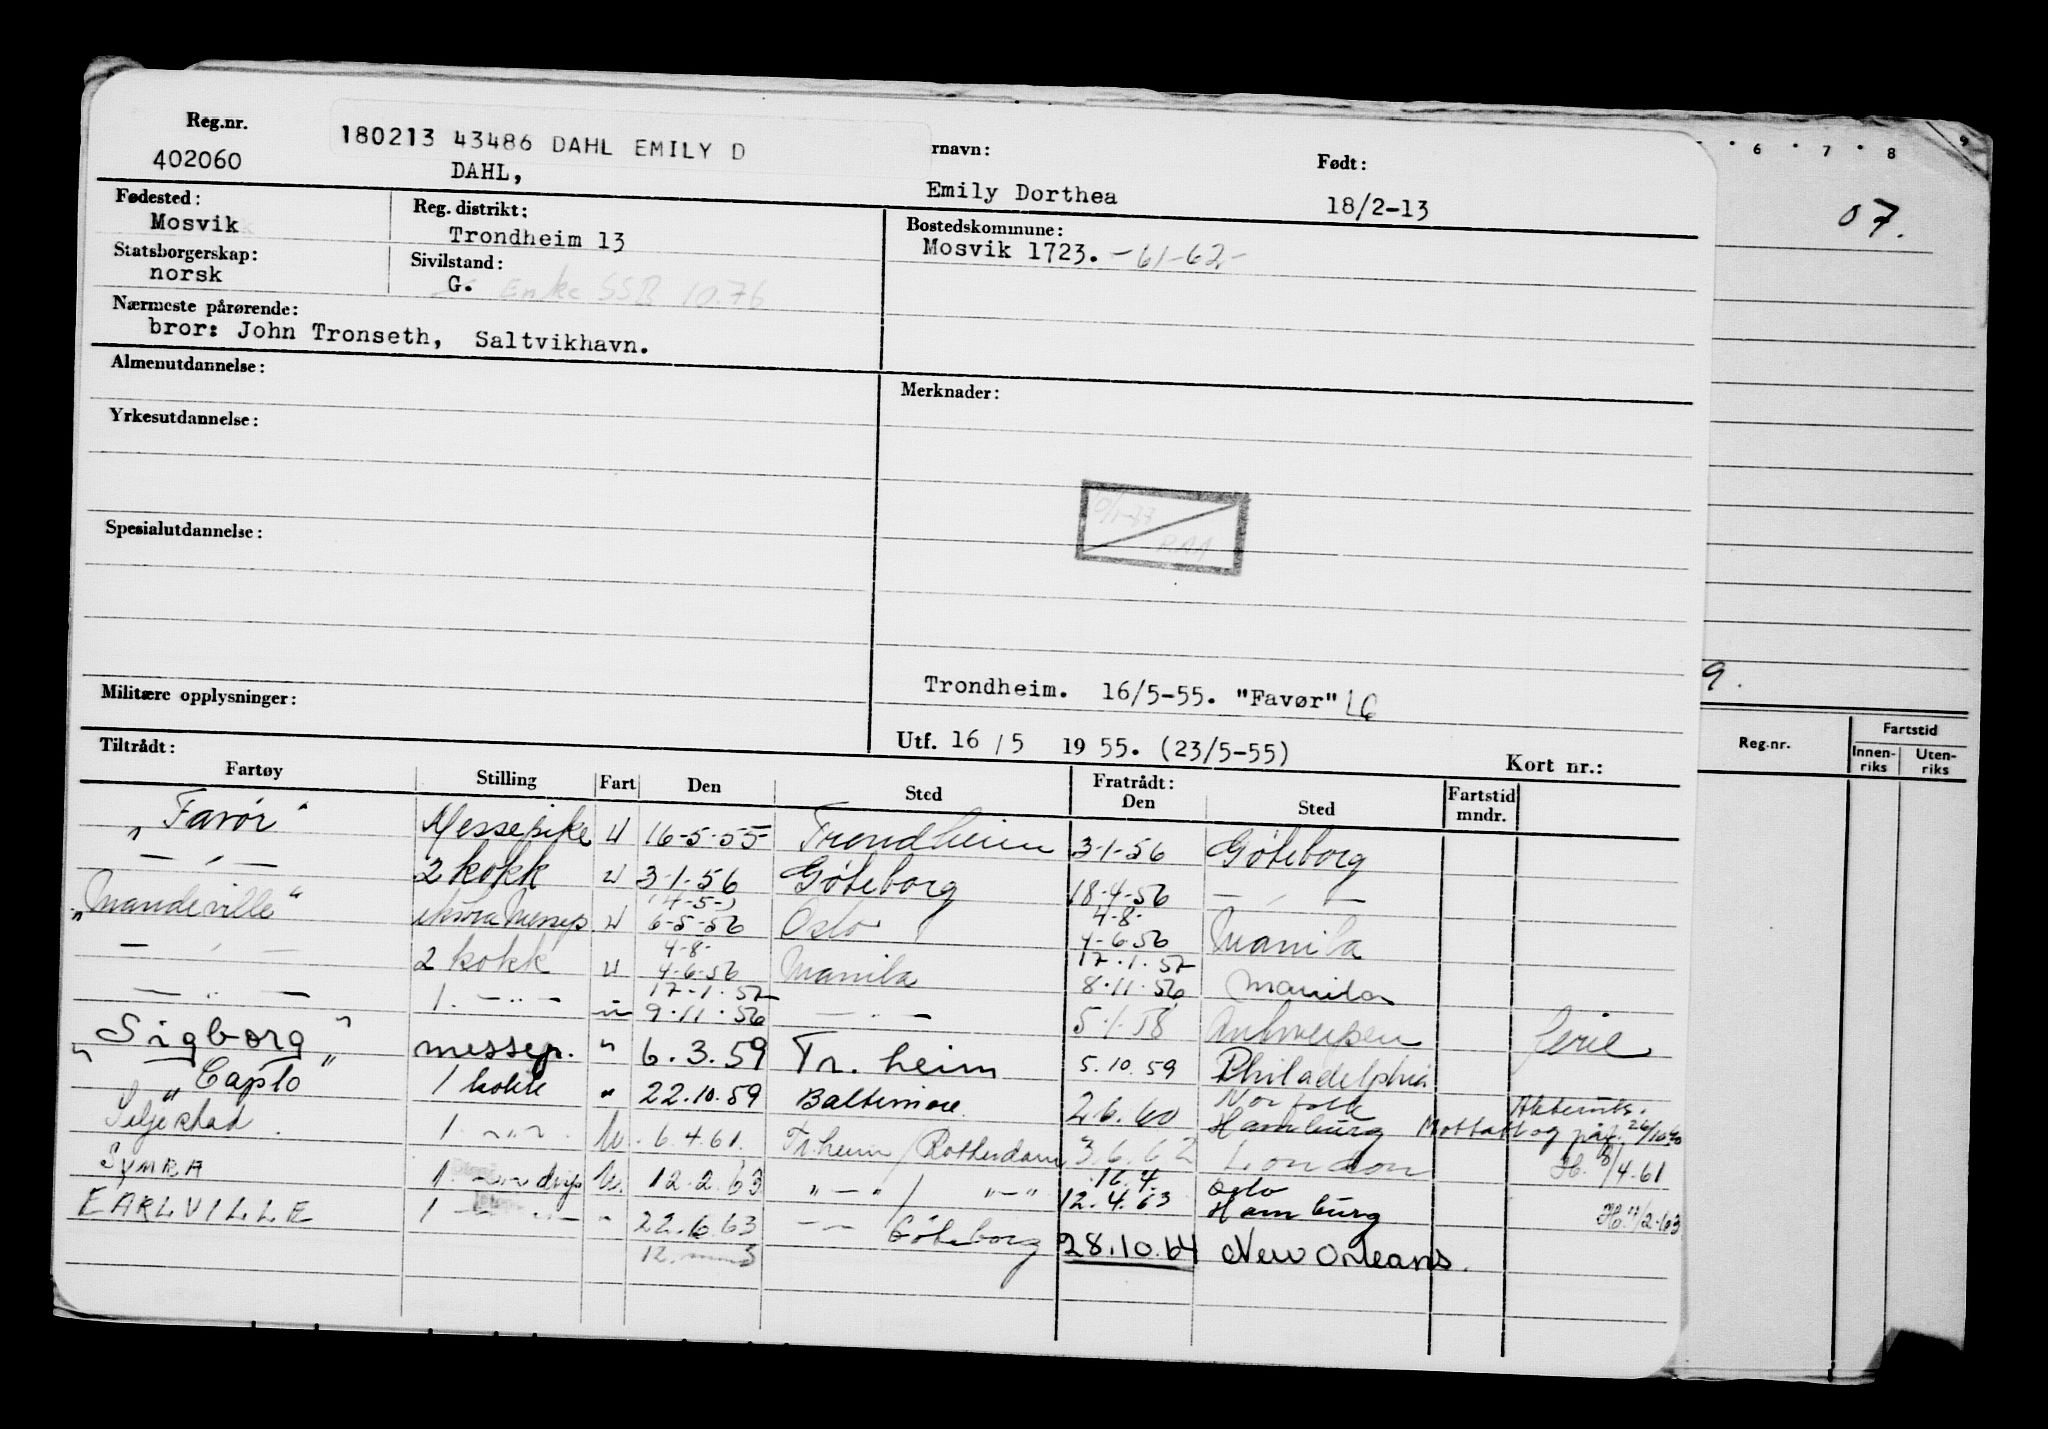 Reg.nr.
402060
180213 43486 DAHL EMILY D
DAHL,
rnavn:
Emily Dorthea
Født:
18/2-13
Fødested:
Mosvik
Reg. distrikt:
Trondheim 13
Bostedskommune:
Mosvik 1723. -61-62-
Statsborgerskap:
norsk
Sivilstand:
G. Enke SSB 10.76
Nærmeste pårørende:
bror: John Tronseth, Saltvikhavn.
Almenutdannelse:
Merknader:
Yrkesutdannelse:
Spesialutdannelse:
Militære opplysninger:
Trondheim. 16/5-55. "Favør"
Utf. 16/5 1955. (23/5-55)
Kort nr.:
Tiltrådt:
Fartøy Stilling Fart Den Sted Fratrådt: Den Sted Fartstid mndr.
"Favør" Messepike U 16-5-55 Trondheim 3-1-56 Göteborg
— " — 2 kokk U 3-1-56 Göteborg 18-4-56 — " —
"Mandeville" U 6-5-56 Oslo 4-8- 4-6-56 Manila
— " — 2 kokk U 4-8- 4-6-56 Manila 17-1-57 8-11-56 Manila
— " — 1. — " — 17-1-57 9-11-56 — " — 5-1-58 Antwerpen ferie
"Sigborg" messep. " 6.3.59 Tr.heim 5.10.59 Philadelphia
"Capto" 1 kokk " 22.10.59 Baltimore 2.6.60 Norfolk Hamburg
Siljestad 1. — " — U. 6.4.61. Tr.heim / Rotterdam 3.6.62 London 8/4.61
SYMRA 1 U. 12.2.63 " — " / " — " 16.4. 12.4.63 Oslo Hamburg 11/2-63
EARLVILLE 1 — " — " 22.6.63 Göteborg 28.10.64 New Orleans.
6 7 8 9
07.
9.
Reg.nr.
Fartstid
Innen-riks
Uten-riks